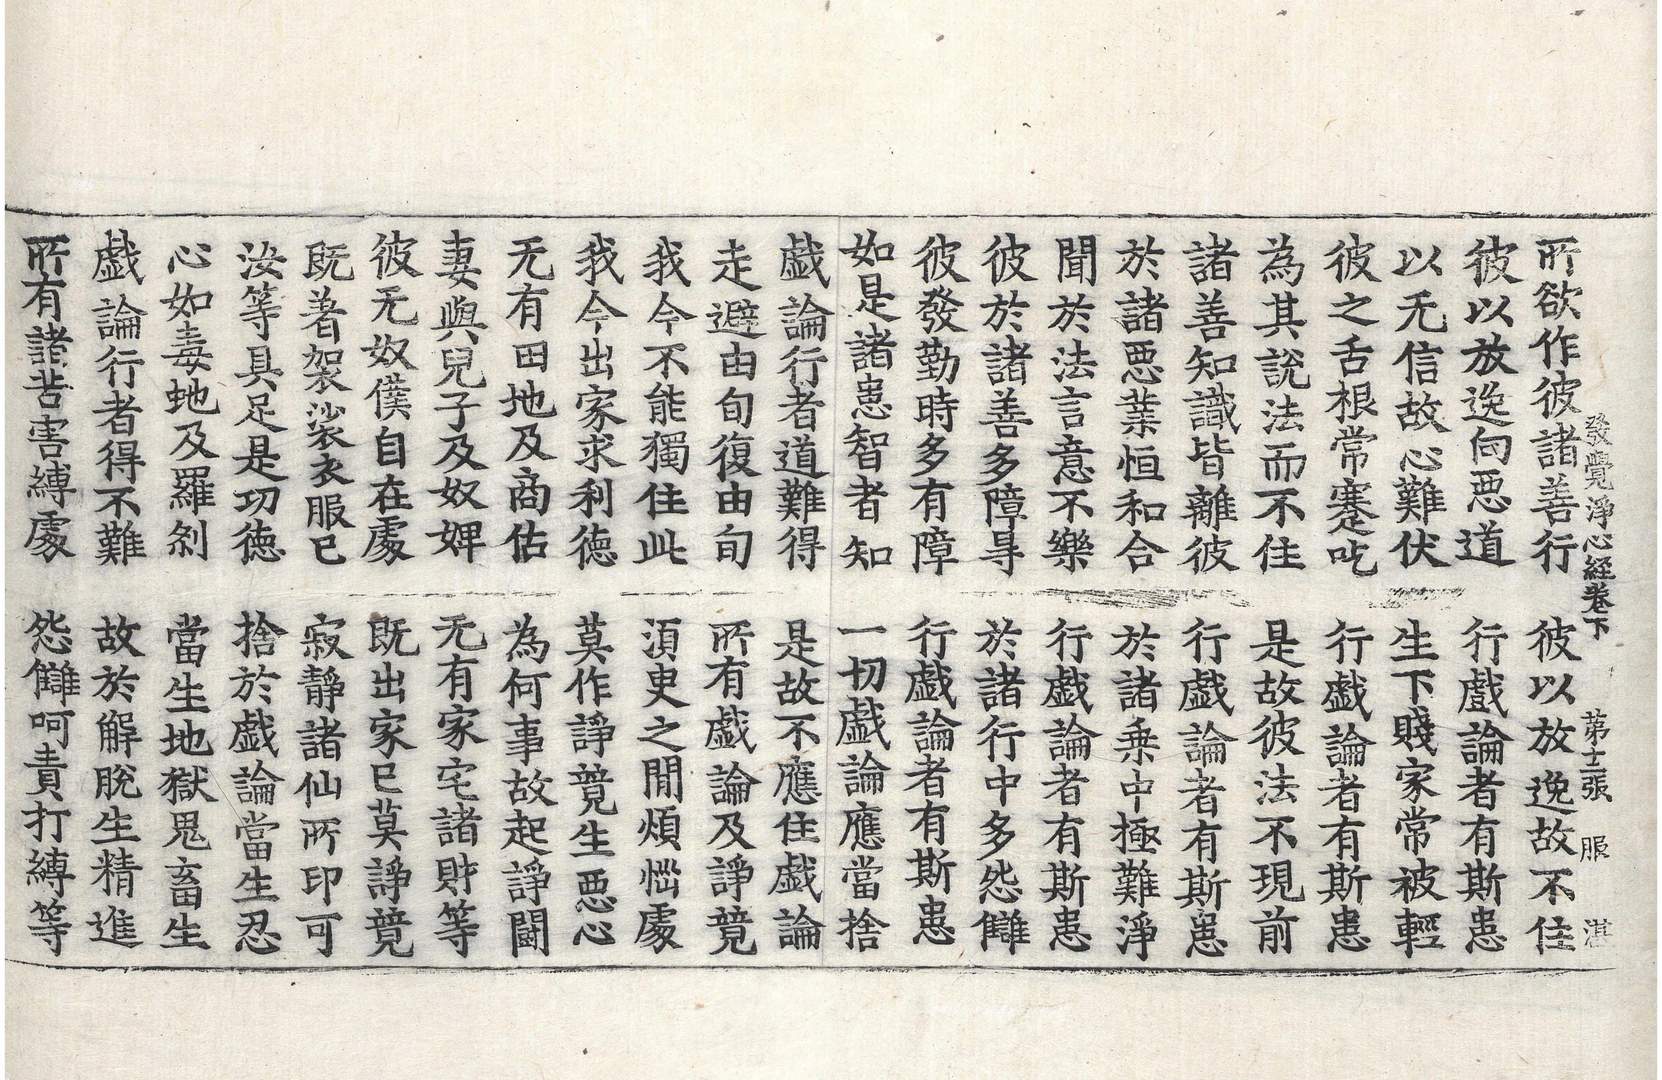 發覺淨心經卷下 第十二張 服 湛
所欲作彼諸善行 彼以放逸故不住
彼以放逸向惡道 行戲論者有斯患
以无信故心難伏 生下賤家常被輕
彼之舌根常蹇吃 行戲論者有斯患
為其說法而不住 是故彼法不現前
諸善知識皆離彼 行戲論者有斯患
於諸惡業恒和合 於諸乗中極難淨
聞於法言意不樂 行戲論者有斯患
彼於諸善多障㝵 於諸行中多怨讎
彼發勤時多有障 行戲論者有斯患
如是諸患智者知 一切戲論應當捨
戲論行者道難得 是故不應住戲論
走避由旬復由旬 所有戲論及諍競
我今不能獨住此 須臾之間煩惱處
我今出家求利徳 莫作諍競生惡心
无有田地及商估 為何事故起諍鬪
妻與兒子及奴婢 无有家宅諸財等
彼无奴僕自在處 既出家已莫諍競
既著袈裟衣服已 寂靜諸仙所印可
汝等具足是功徳 捨於戲論當生忍
心如毒虵及羅剎 當生地獄鬼畜生
戲論行者得不難 故於解脫生精進
所有諸苦害縛處 怨讎呵責打縛等